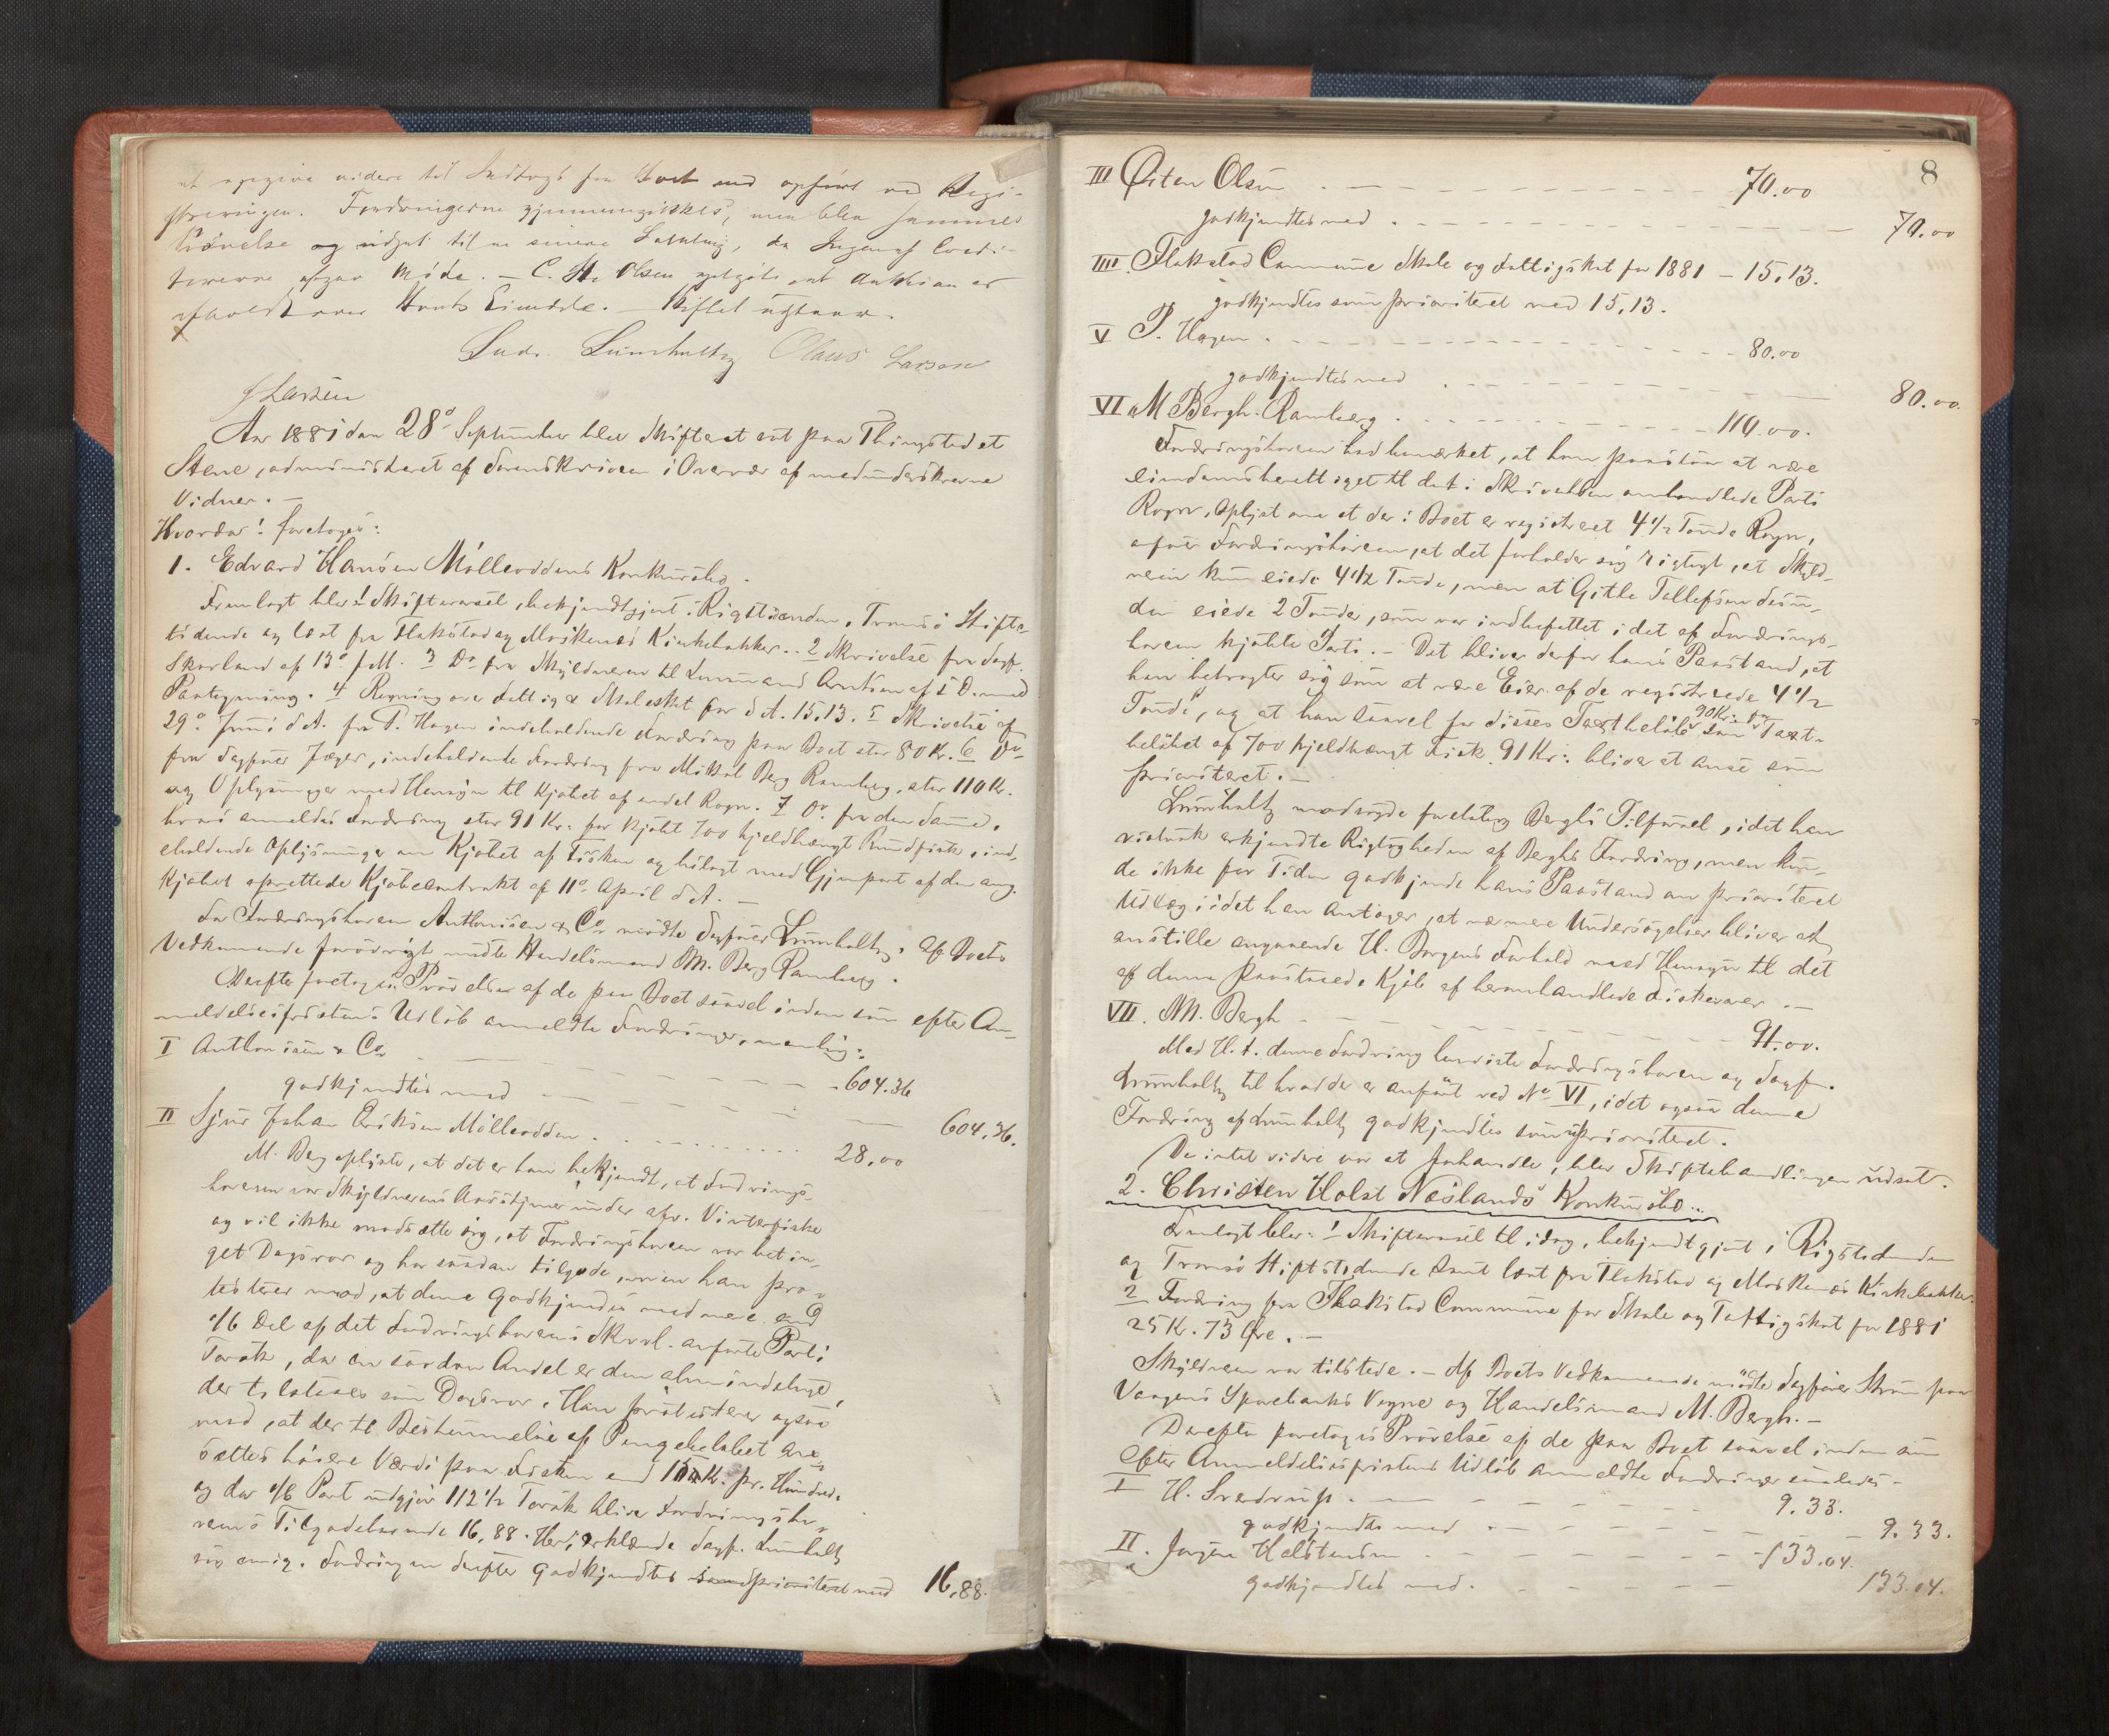 at opgive videre til Indtægt for Boet end opført ved Regi-
streringen. Fordringerne gjennemgikkes, men blev sammes
Prøvelse og udsat til en senere Samling, da Ingen af Credi-
torerne afgav Møde. — C. H. Olsen at Auktion er
afholdt over Boets Eiendele. — Skiftet udsat.
Ludv. Lumholtz Olaus Larsen
J Larsen
Aar 1881 den 28de September blev Skifteret sat paa Thingstedet
Stene, administreret af Sorenskriveren i Overvær af medunderskrevne
Vidner. —
Hvorda! foretoges:
1. Edvard Hansen Mølleoddens Konkursbo.
Fremlagt blev: 1 Skiftevarsel, bekjendtgjort i Rigstidenden, Tromsø Stifts-
tidende og læst fra Flakstad og Moskenæs Kirkebakker. 2 Skrivelse fra Sagf.
Skarland af 13de f.M. 3 Do fra Skyldneren til Lensmand Arntsen af s.D. med
Paategning. 4 Regning over Fattig & Skoleskat for d.A. 15.13. 5 Skrivelse af
29de Juni d.A. fra P. Hagen indeholdende Fordring paa Boet stor 80 Kr. 6 Do
fra Sagfører Jæger, indeholdende Fordring fra Mikal Berg Ramberg, stor 110 Kr.
og Oplysninger med Hensyn til Kjøbet af endel Rogn. 7 Do fra den samme,
hvori anmeldes Fordring stor 91 Kr. for kjøbt 700 hjeldhængt Rundfisk, ind-
eholdende Oplysninger om Kjøbet af Fisken og bilagt med Gjenpart af den ang.
Kjøbet oprettede Kjøbecontrakt af 11de April d.A. —
For Fordringshaveren Anthonisen & Co mødte Sagfører Lumholtz. Af Boets
Vedkommende forøvrigt mødte Handelsmand M. Berg Ramberg.
Derefter foretoges Prøvelse af de paa Boet saavel inden som efter An-
meldelsesfristens Udløb anmeldte Fordringer, nemlig:
I Anthonisen & Co — — — 604.36
godkjendtes med — — — 604.36.
II Sjur Johan Eriksen Mølleodden . . . . . . . 28.00
M. Berg oplyste, at det er ham bekjendt, at Fordrings-
haveren var Skyldnerens Aarstjener under afv. Vinterfiske
og vil ikke modsætte sig, at Fordringshaveren var betin-
get Dagsror og har saadan tilgode, men han pro-
testerer mod, at denne godkjendes med mere end
1/6 Del af det Fordringshaverens Skrivl. anførte Parti
Torsk, da en saadan Andel er den almindelige,
der tilstaaes som Dagsror. Han protesterer ogsaa
mod, at der til Bestemmelse af Pengebeløbet an-
sættes høiere Værdi paa Fisken end 15 Kr. pr. Hundred,
og da 1/6 Part udgjør 112 1/2 Torsk bliver Fordringsha-
verens Tilgodehavende 16,88. Heri erklærede Sagf. Lumholtz
sig enig. Fordringen derefter godkjendtes som prioriteret med 16,88.
8
III Østen Olsen . — — — 70.00
godkjendtes med . — — — 70.00
IIII. Flakstad Commune Skole og Fattigskat for 1881 — 15,13.
godkjendtes som prioriteret med 15,13.
V P. Hagen . — — — 80.00
godkjendtes med . — — — 80.00.
VI M Bergh. Ramberg . — — — 110.00.
Fordringshaveren had bemærket, at han paastaar at være
eiendomsberettiget til det i Skrivelsen omhandlede Parti
Rogn. Oplyst om at der i Boet er registreret 4 1/2 Tønde Rogn,
anfører Fordringshaveren, at det forholder sig rigtigt, at Skyld-
neren kun eiede 4 1/2 Tønde, men at Gitle Tollefsen desu-
den eiede 2 Tønder, som var indbefattet i det af Fordrings-
haveren kjøbte Parti. — Det bliver derfor hans Paastand, at
han betragter sig som at være Eier af de registrerede 4 1/2
Tønde, og at han saavel for disses Taxtbeløb 90 Kr. som Taxt-
beløbet af 700 hjeldhængt Fisk 91 Kr: bliver at anse som
prioriteret. —
Lumholtz modsagde foreløbig Berghs Tilførsel, idet han
vistnok erkjendte Rigtigheden af Berghs Fordring, men kun-
de ikke for Tiden godkjende hans Paastand om prioriteret
Udlæg, idet han antager, at nærmere Undersøgelser bliver at
anstille angaaende H. Borgens Forhold med Hensyn til det
af denne paastaaede Kjøb af heromhandlede Fiskevarer. —
VII. M. Bergh — — — 91.00.
Med H.t. denne Fordring henviste Fordringshaveren og Sagf.
Lumholtz til hvad der er anført ved No VI, idet ogsaa denne
Fordring af Lumholtz godkjendtes som uprioriteret.
Da intet videre var at forhandle, blev Skiftebehandlingen udsat.
2. Christen Holst Næslands Konkursbo.
Fremlagt blev: 1 Skiftevarsel til idag, bekjendtgjort i Rigstidenden
og Tromsø Stiftstidende samt læst fra Flakstad og Moskenæs Kirkebakker.
2 Fordring fra Flakstad Commune for Skole og Fattigskat for 1881
25 Kr. 73 Øre. —
Skyldneren var tilstede. — Af Boets Vedkommende mødte Sagfører Strøm paa
Vaagens Sparebanks Vegne og Handelsmand M. Bergh. —
Derefter foretoges Prøvelse af de paa Boet saavel inden som
efter Anmeldelsesfristens Udløb anmeldte Fordringer saaledes —
I H. Sverdrup . — — — 9.33.
godkjendtes med . — — — 9.33.
II. Jørgen Halstensen . — — — 133.04.
godkjendtes med . — — — 133.04.